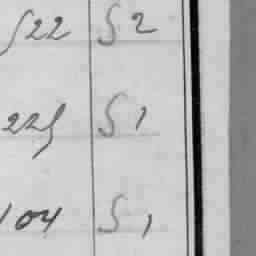 522 52
225 51
104 51